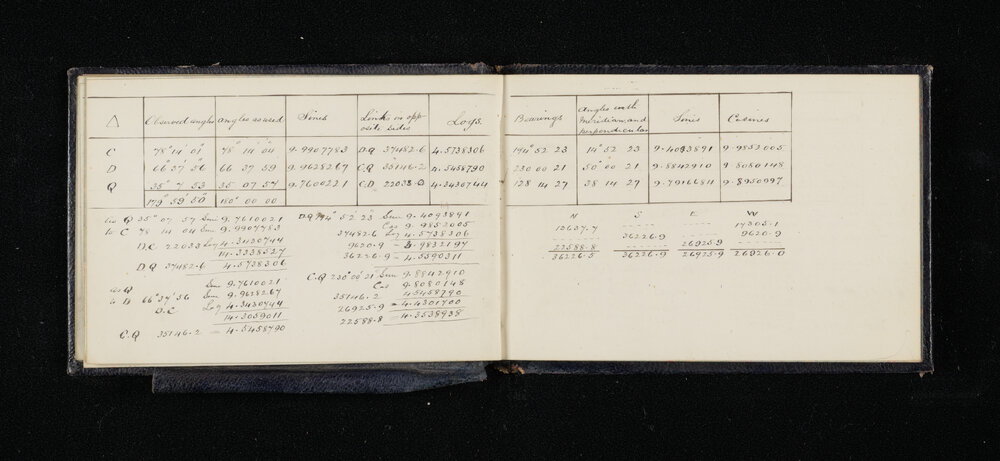 △ Observed angles angles as used Sines Links in opposite sides Logs.
C 78° 14' 01" 78° 14' 04" 9.9907783 D.Q 37482.6 4.5738306
D 66° 37' 56" 66 37 59 9.9628267 C.Q 35146.2 4.5458790
Q 35° 7 53 35 07 57 9.7600221 C.D 22033.0 4.3430744
179° 59' 50" 180° 00 00
as Q 35° 07' 57 Sine 9.7610021
to C 78 14 04 Sine 9.9907783
D.C 22033 Log 4.3430744
14.3338527
D.Q 37482.6 4.5738306
as Q Sine 9.7610021
to D 66° 37' 56 Sine 9.9628267
D.C Log 4.3430744
14.3059011
C.Q 35146.2 = 4.5458790
D.Q 194° 52' 23" Sine 9.4093891
Cos 9.9852005
37482.6 Log 4.5738306
9620.9 = 3.9832197
36226.9 = 4.5590311
C.Q 230° 00' 21 Sine 9.8842910
Cos 9.8080148
35146.2 4.5458790
26925.9 = 4.4301700
22588.8 = 4.3538938
Bearings Angles with Meridian and perpendicular Sines Cosines
194° 52 23 14° 52 23 9.4093891 9.9852005
230 00 21 50° 00 21 9.8842910 9.8080148
128 14 27 38 14 27 9.7916684 9.8950997
N S E W
13637.7 17305.1
36226.9 9620.9
22588.8 26925.9
36226.5 36226.9 26925.9 26926.0